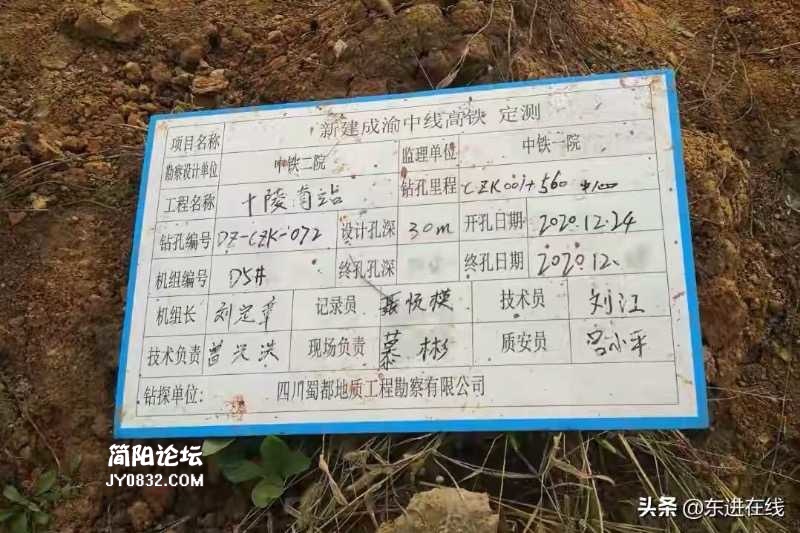 项目名称 新建成渝中线高铁 定测
勘察设计单位 中铁二院 监理单位 中铁一院
工程名称 十陵南站 钻孔里程 CZK001+560
钻孔编号 DZ-CZK-072 设计孔深 30m 开孔日期 2020.12.24
机组编号 D5# 终孔孔深 终孔日期 2020.12.
机组长 刘定章 记录员 聂恒模 技术员 刘江
技术负责 曾 洪 现场负责 慕彬 质安员 吕小平
钻探单位: 四川蜀都地质工程勘察有限公司
简阳论坛
JY0832.COM
头条 @东进在线